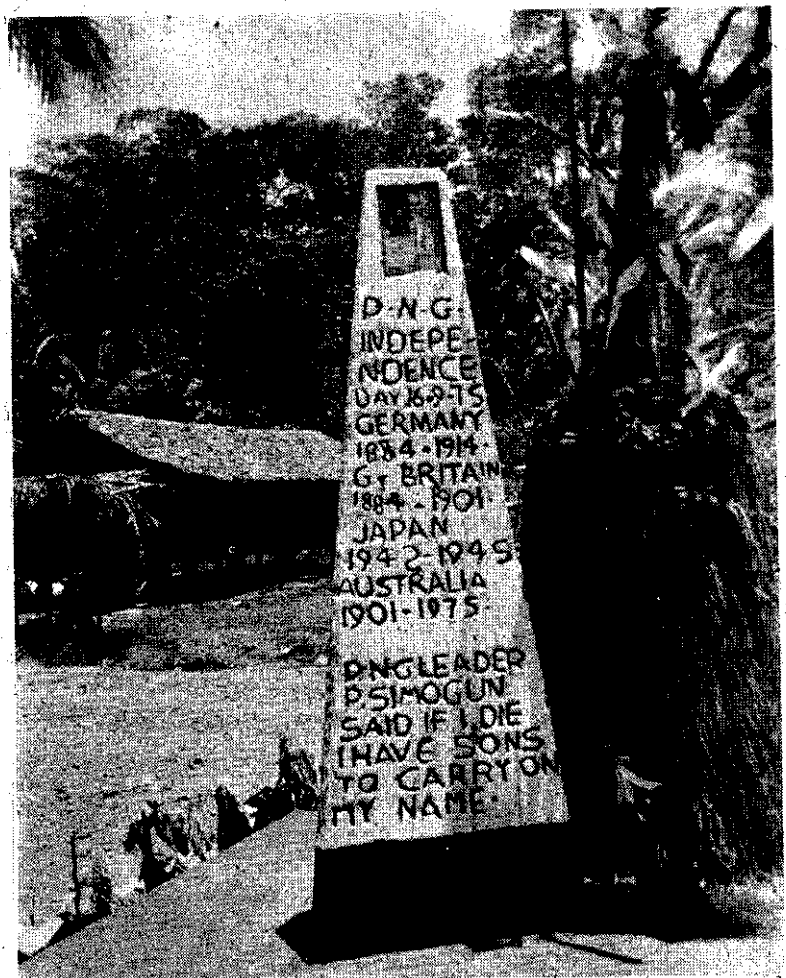 P.N.G.
INDEPE-
NDENCE
DAY 16.9.75
GERMANY
1884-1914.
GT BRITAIN
1884-1901.
JAPAN
1942-1945
AUSTRALIA
1901-1975.
P.N.G LEADER
P.SIMOGUN
SAID IF I DIE
I HAVE SONS
TO CARRY ON
MY NAME.